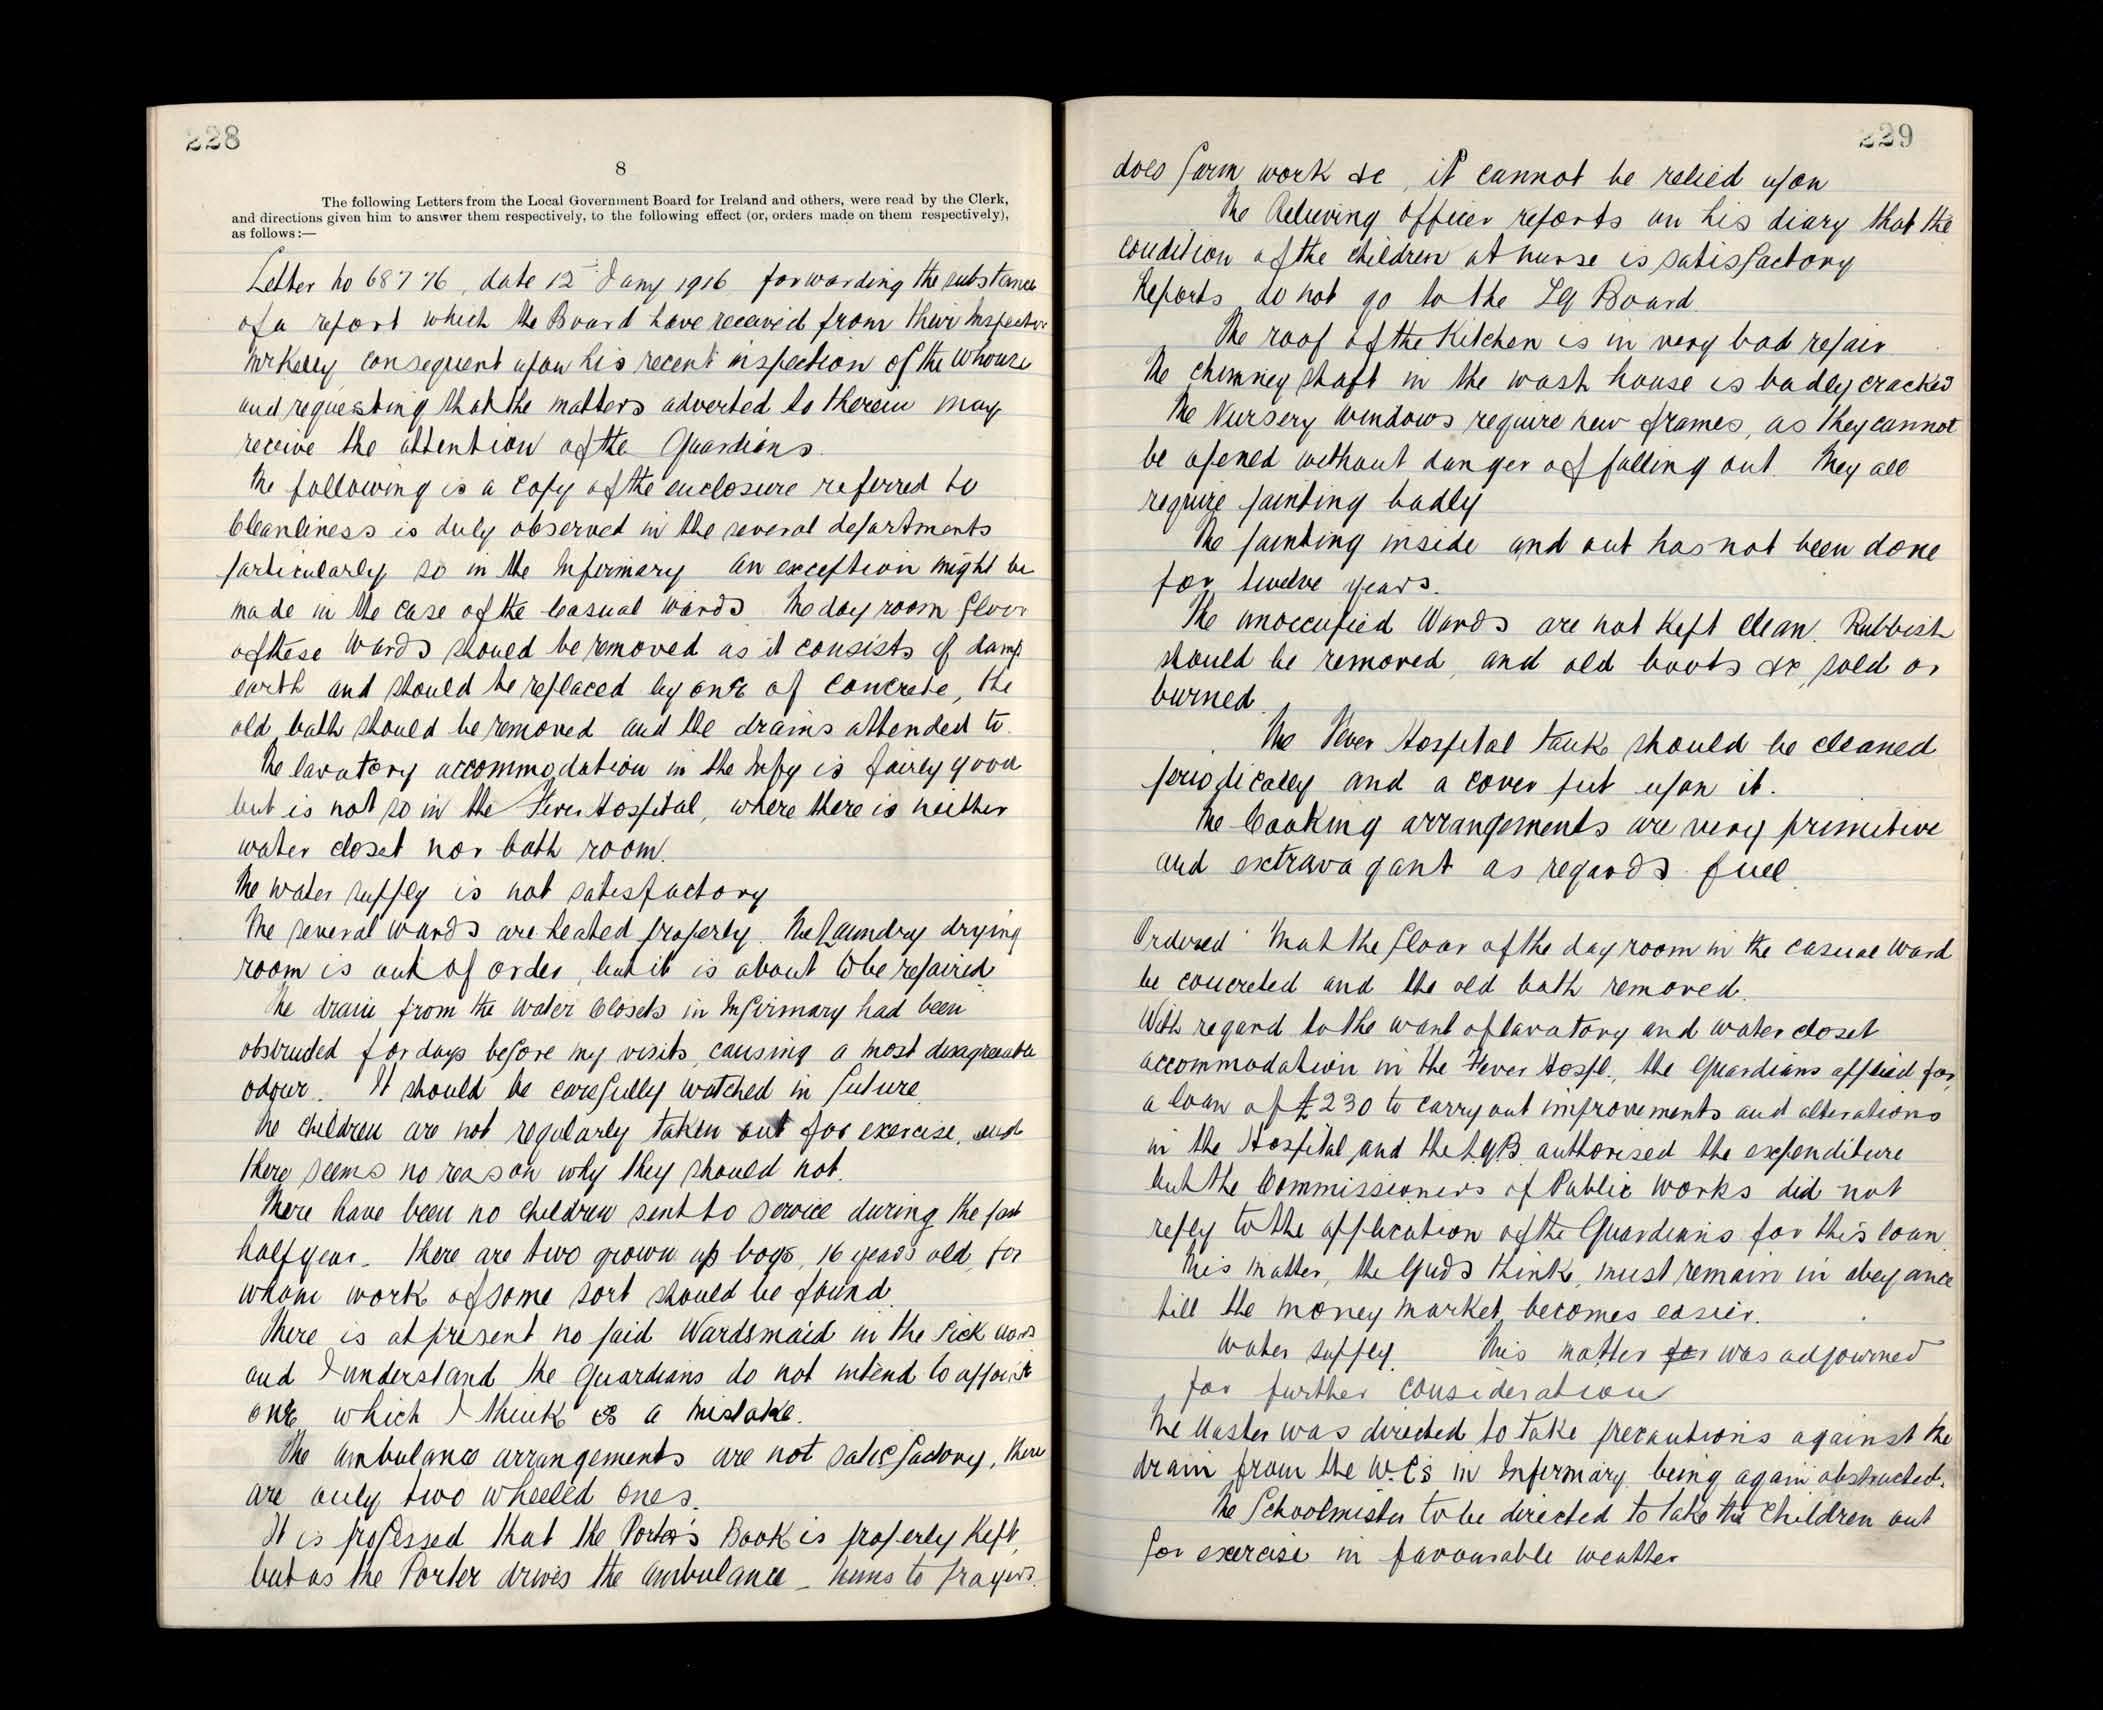 228
8
The following Letters from the Local Government Board for Ireland and others, were read by the Clerk,
and directions given him to answer them respectively, to the following effect (or, orders made on them respectively),
as follows:—
Letter no 68776, date 12 Jany 1916 forwarding the substance
of a report which the Board have received from their Inspector
Mr Kelly consequent upon his recent inspection of the Whouse
and requesting that the matters adverted to therein may
receive the attention of the Guardians.
The following is a copy of the enclosure referred to
Cleanliness is duly observed in the several departments
particularly so in the Infirmary an exception might be
made in the case of the Casual Wards. The day room floor
of these Wards should be removed as it consists of damp
earth and should be replaced by one of concrete, the
old bath should be removed and the drains attended to.
The lavatory accommodation in the Infy is fairly good
but is not so in the Fever Hospital, where there is neither
water closet nor bath room.
The water supply is not satisfactory
The several wards are heated properly. The Laundry drying
room is out of order, but it is about to be repaired.
The drain from the Water Closets in Infirmary had been
obstructed for days before my visits, causing a most disagreeable
odour. It should be carefully watched in future.
The children are not regularly taken out for exercise, and
there seems no reason why they should not.
There have been no children sent to service during the past
half year. There are two grown up boys, 16 years old, for
whom work of some sort should be found.
There is at present no paid Wardsmaid in the Sick wards
and I understand the Guardians do not intend to appoint
one which I think is a mistake.
The ambulance arrangements are not satisfactory, there
are only two wheeled ones.
It is professed that the Porter's Book is properly kept,
but as the Porter drives the ambulance – hums to Prayers.
229
does farm work &c, it cannot be relied upon
The Relieving Officer reports on his diary that the
condition of the children at nurse is satisfactory
Reports do not go to the LG Board.
The roof of the Kitchen is in very bad repair
The chimney shaft in the wash house is badly cracked
The Nursery windows require new frames, as they cannot
be opened without danger of falling out. They all
require painting badly
The painting inside and out has not been done
for twelve years.
The unoccupied Wards are not kept clean. Rubbish
should be removed, and old boots &c, sold or
burned.
The Fever Hospital tank should be cleaned
periodically and a cover put upon it.
The Cooking arrangements are very primitive
and extravagant as regards fuel.
Ordered That the floor of the day room in the casual ward
be concreted and the old bath removed.
With regard to the want of lavatory and water closet
accommodation in the Fever Hospl., the Guardians applied for
a loan of £230 to carry out improvements and alterations
in the Hospital and the L.G.B. authorised the expenditure
but the Commissioners of Public Works did not
reply to the application of the Guardians for this loan
This matter, the Guds think, must remain in abeyance
till the money market becomes easier.
Water supply. This matter for was adjourned
for further consideration
The Master was directed to take precautions against the
drain from the W.C's in Infirmary being again obstructed.
The Schoolmistes to be directed to take the children out
for exercise in favourable weather